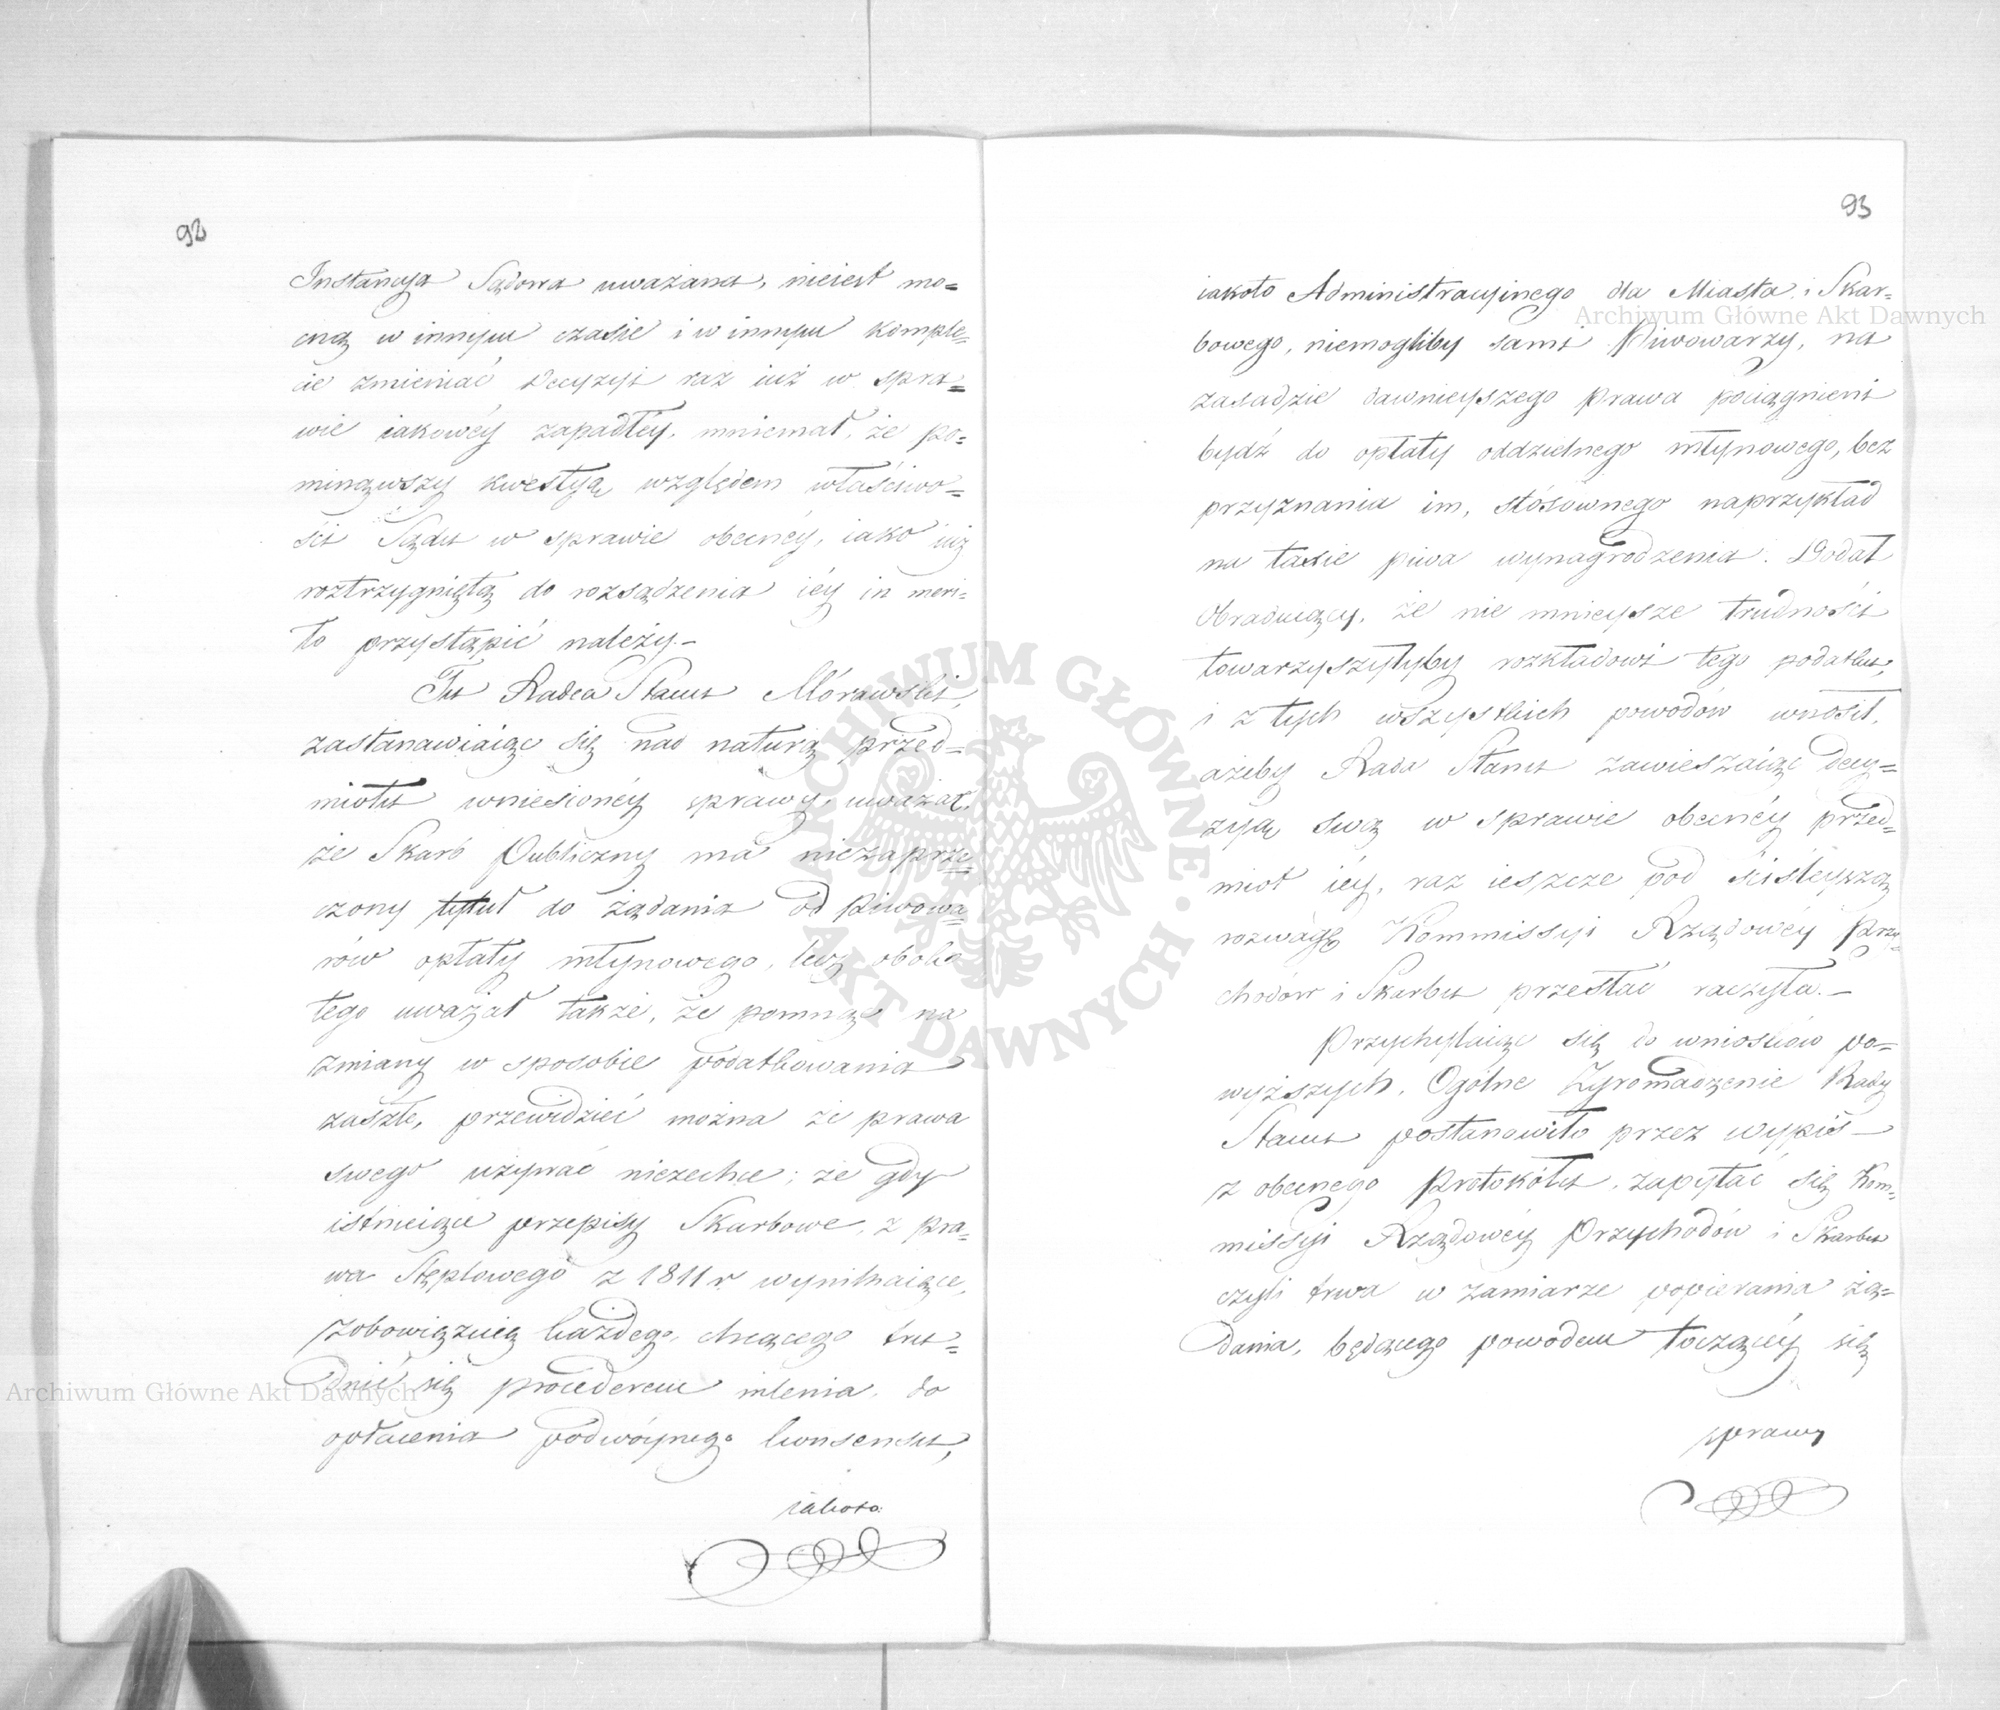 92
Instancya Sądowa uważana, nieiest mo=
cną w innym czasie i w innym komple=
cie zmieniać Decyzyi raz iuż w spra=
wie iakowéy zapadłéy, mniemał, że po=
minąwszy kwestyą względem właściwo=
ści Sądu w sprawie obecnéy, iako iuż
roztrzygniętą do rozsądzenia iéy in meri=
to przystąpić należy.—
Tu Radca Stanu Morawski,
zastanawiaiąc się nad naturą przed=
miotu wniesionéy sprawy, uważał,
że Skarb Publiczny ma niezaprze=
czony tytuł do żądania od Piwowa=
rów opłaty młynowego, lecz obok
tego uważał także, że pomnąc na
zmiany w sposobie podatkowania
zaszłe, przewidzieć można że prawa
swego używać niezechce; że gdy
istnieiące przepisy Skarbowe, z pra=
wa Stęplowego z 1811 r. wynikaiące,
zobowiązuią każdego, chcącego tru=
dnić się procederem mlenia, do
opłacenia podwóynego konsensu,
iakoto
93
iakoto Administracyinego dla Miasta i Skar=
bowego, niemogliby sami Piwowarzy, na
zasadzie dawnieyszego prawa pociągnieni
bydź do opłaty oddzielnego młynowego, bez
przyznania im, stósownego naprzykład
na taxie piwa wynagrodzenia. Dodał
Obraduiący, że nie mnieysze trudności
towarzyszyłyby rozkładowi tego podatku,
i z tych wszystkich powodów wnosił,
ażeby Rada Stanu zawieszaiąc decy=
zyą swą w sprawie obecnéy przed=
miot iéy, raz ieszcze pod ściśleyszą
rozwagę Kommissyi Rządowéy Przy=
chodów i Skarbu przesłać raczyła.—
Przychylaiąc się do wniosków po=
wyższych, Ogólne Zgromadzenie Rady
Stanu postanowiło przez wypis
z obecnego Protokółu, zapytać się Kom=
missyi Rządowéy Przychodów i Skarbu
czyli trwa w zamiarze popierania żą=
dania, będącego powodem toczącéy się
sprawy
ARCHIWUM GŁÓWNE AKT DAWNYCH
Archiwum Główne Akt Dawnych
Archiwum Główne Akt Dawnych